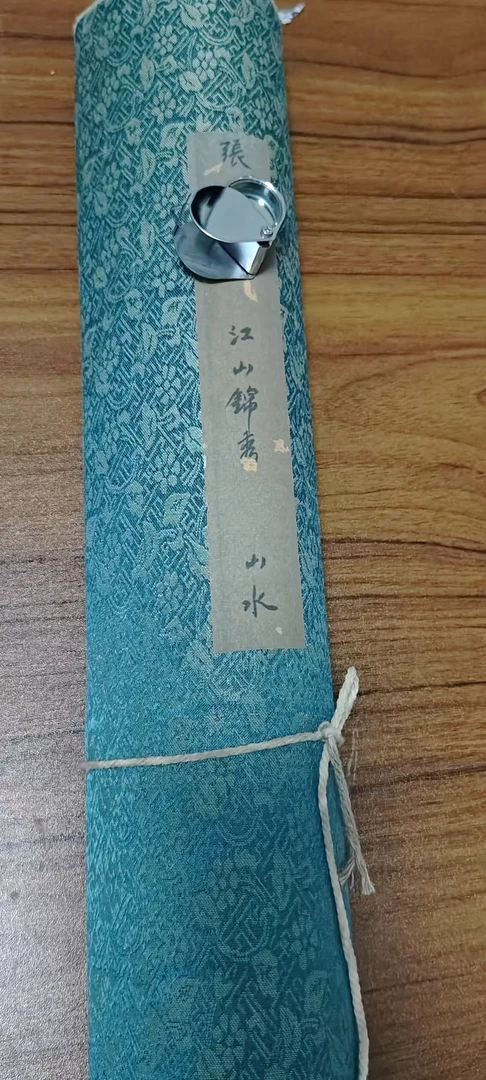 張
江山錦秀
山水